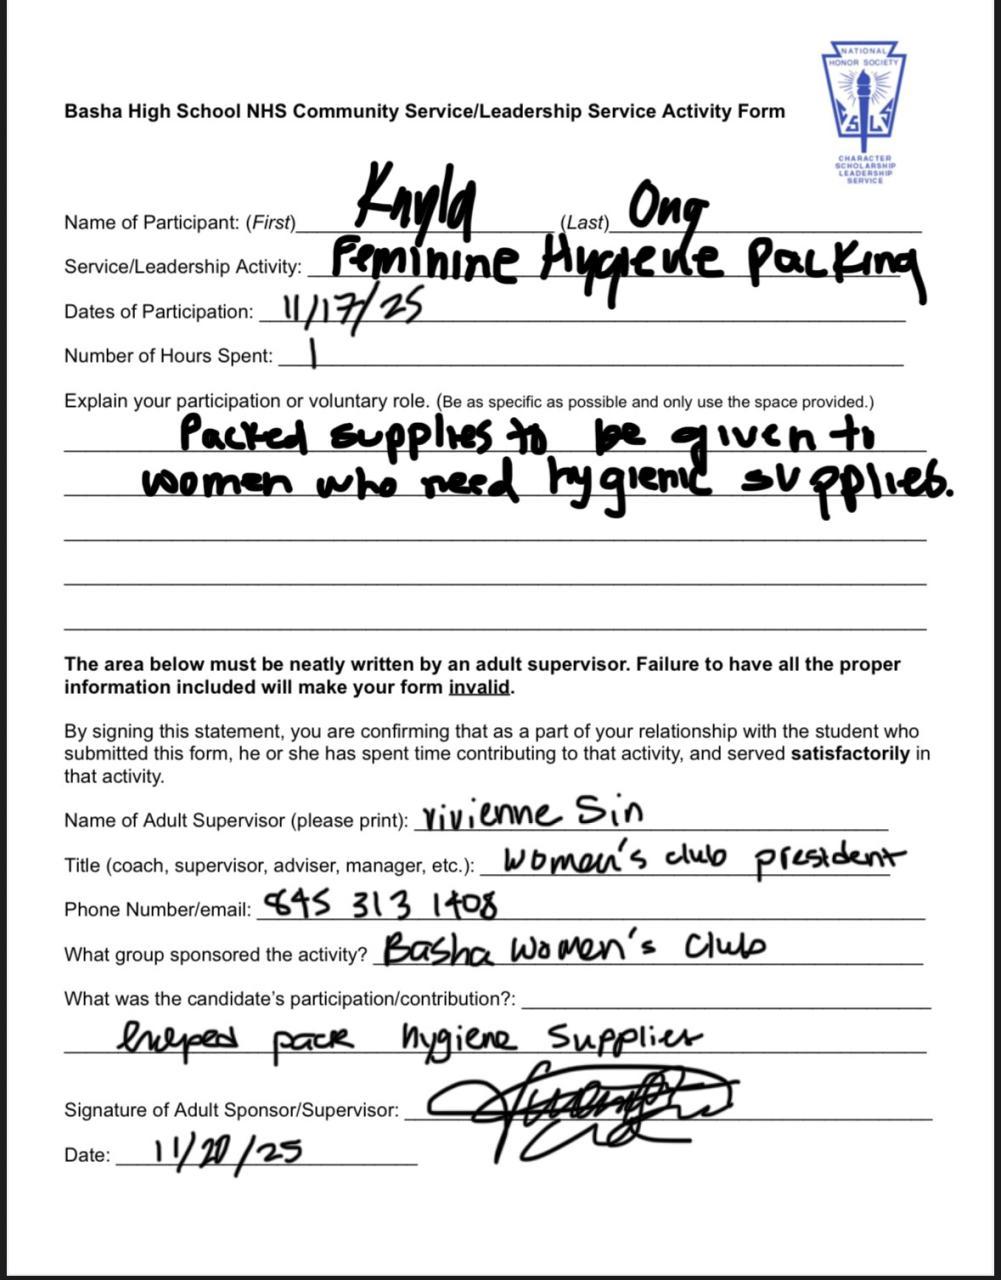 NATIONAL
HONOR SOCIETY
S L S
CHARACTER
SCHOLARSHIP
LEADERSHIP
SERVICE
Basha High School NHS Community Service/Leadership Service Activity Form
Name of Participant: (First) Kayla (Last) Ong
Service/Leadership Activity: Feminine Hygiene Packing
Dates of Participation: 11/17/25
Number of Hours Spent: 1
Explain your participation or voluntary role. (Be as specific as possible and only use the space provided.)
Packed supplies to be given to
women who need hygienic supplies.
The area below must be neatly written by an adult supervisor. Failure to have all the proper
information included will make your form invalid.
By signing this statement, you are confirming that as a part of your relationship with the student who
submitted this form, he or she has spent time contributing to that activity, and served satisfactorily in
that activity.
Name of Adult Supervisor (please print): Vivienne Sin
Title (coach, supervisor, adviser, manager, etc.): Women's club president
Phone Number/email: 845 313 1408
What group sponsored the activity? Basha Women's Club
What was the candidate's participation/contribution?:
helped pack hygiene supplies
Signature of Adult Sponsor/Supervisor:
Date: 11/20/25